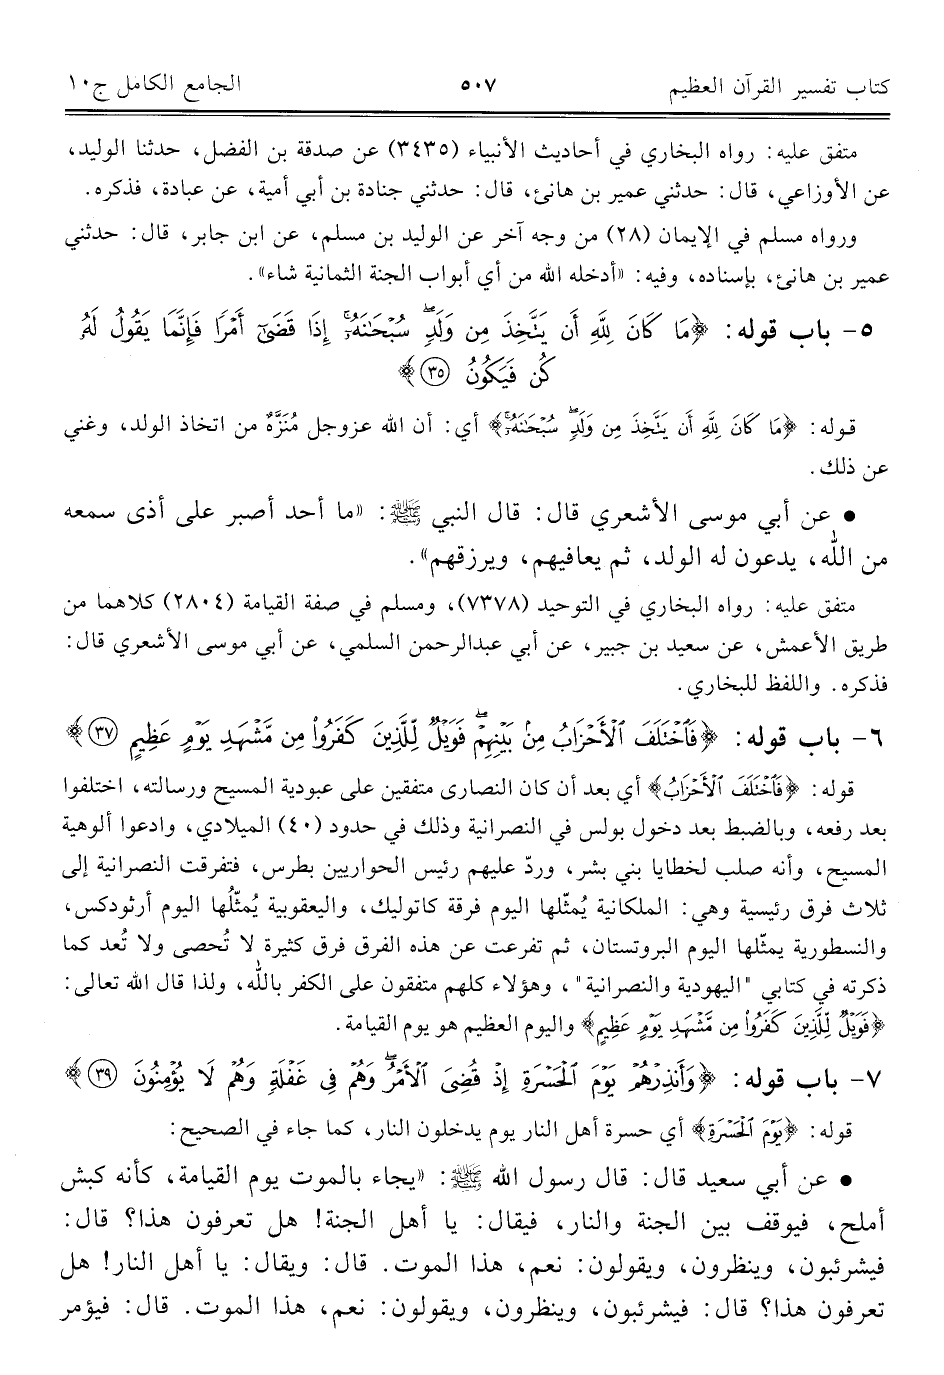 كتاب تفسير القرآن العظيم ٥٠٧ الجامع الكامل ج١٠
متفق عليه: رواه البخاري في أحاديث الأنبياء (٣٤٣٥) عن صدقة بن الفضل، حدثنا الوليد،
عن الأوزاعي، قال: حدثني عمير بن هانئ، قال: حدثني جنادة بن أبي أمية، عن عبادة، فذكره.
ورواه مسلم في الإيمان (٢٨) من وجه آخر عن الوليد بن مسلم، عن ابن جابر، قال: حدثني
عمير بن هانئ، بإسناده، وفيه: «أدخله الله من أي أبواب الجنة الثمانية شاء».
٥- باب قوله: ﴿مَا كَانَ لِلَّهِ أَن يَتَّخِذَ مِن وَلَدٍۖ سُبْحَٰنَهُۥٓۚ إِذَا قَضَىٰٓ أَمْرًا فَإِنَّمَا يَقُولُ لَهُۥ
كُن فَيَكُونُ ٣٥﴾
قوله: ﴿مَا كَانَ لِلَّهِ أَن يَتَّخِذَ مِن وَلَدٍۖ سُبْحَٰنَهُۥٓۚ﴾ أي: أن الله عزوجل مُنَزَّهٌ من اتخاذ الولد، وغني
عن ذلك.
• عن أبي موسى الأشعري قال: قال النبي ﷺ: «ما أحد أصبر على أذى سمعه
من الله، يدعون له الولد، ثم يعافيهم، ويرزقهم».
متفق عليه: رواه البخاري في التوحيد (٧٣٧٨)، ومسلم في صفة القيامة (٢٨٠٤) كلاهما من
طريق الأعمش، عن سعيد بن جبير، عن أبي عبدالرحمن السلمي، عن أبي موسى الأشعري قال:
فذكره. واللفظ للبخاري.
٦- باب قوله: ﴿فَٱخْتَلَفَ ٱلْأَحْزَابُ مِنۢ بَيْنِهِمْۖ فَوَيْلٌ لِّلَّذِينَ كَفَرُوا۟ مِن مَّشْهَدِ يَوْمٍ عَظِيمٍ ٣٧﴾
قوله: ﴿فَٱخْتَلَفَ ٱلْأَحْزَابُ﴾ أي بعد أن كان النصارى متفقين على عبودية المسيح ورسالته، اختلفوا
بعد رفعه، وبالضبط بعد دخول بولس في النصرانية وذلك في حدود (٤٠) الميلادي، وادعوا ألوهية
المسيح، وأنه صلب لخطايا بني بشر، وردّ عليهم رئيس الحواريين بطرس، فتفرقت النصرانية إلى
ثلاث فرق رئيسية وهي: الملكانية يُمثّلها اليوم فرقة كاتوليك، واليعقوبية يُمثّلُها اليوم أرثودكس،
والنسطورية يمثّلها اليوم البروتستان، ثم تفرعت عن هذه الفرق فرق كثيرة لا تُحصى ولا تُعد كما
ذكرته في كتابي "اليهودية والنصرانية"، وهؤلاء كلهم متفقون على الكفر بالله، ولذا قال الله تعالى:
﴿فَوَيْلٌ لِّلَّذِينَ كَفَرُوا۟ مِن مَّشْهَدِ يَوْمٍ عَظِيمٍ﴾ واليوم العظيم هو يوم القيامة.
٧- باب قوله: ﴿وَأَنذِرْهُمْ يَوْمَ ٱلْحَسْرَةِ إِذْ قُضِىَ ٱلْأَمْرُۖ وَهُمْ فِى غَفْلَةٍ وَهُمْ لَا يُؤْمِنُونَ ٣٩﴾
قوله: ﴿يَوْمَ ٱلْحَسْرَةِ﴾ أي حسرة أهل النار يوم يدخلون النار، كما جاء في الصحيح:
• عن أبي سعيد قال: قال رسول الله ﷺ: «يجاء بالموت يوم القيامة، كأنه كبش
أملح، فيوقف بين الجنة والنار، فيقال: يا أهل الجنة! هل تعرفون هذا؟ قال:
فيشرئبون، وينظرون، ويقولون: نعم، هذا الموت. قال: ويقال: يا أهل النار! هل
تعرفون هذا؟ قال: فيشرئبون، وينظرون، ويقولون: نعم، هذا الموت. قال: فيؤمر